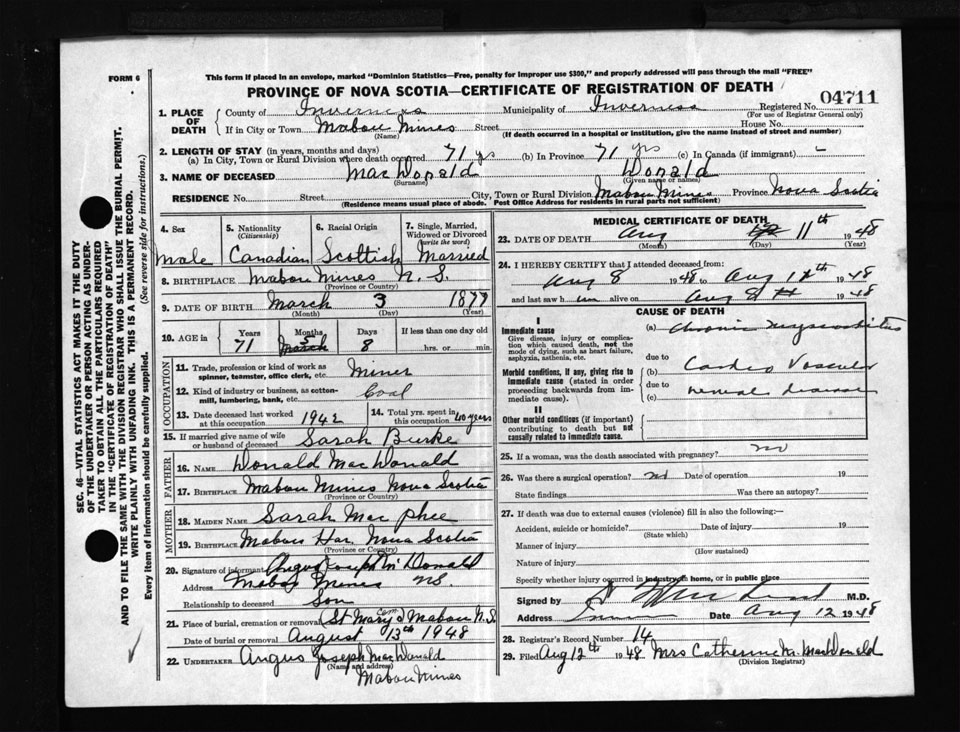 FORM 6
This form if placed in an envelope, marked "Dominion Statistics—Free, penalty for improper use $300," and properly addressed will pass through the mail "FREE"
PROVINCE OF NOVA SCOTIA—CERTIFICATE OF REGISTRATION OF DEATH
04711
1. PLACE OF DEATH County of Inverness Municipality of Inverness Registered No.
(For use of Registrar General only)
If in City or Town Mabou Mines Street House No.
(Name) (If death occurred in a hospital or institution, give the name instead of street and number)
2. LENGTH OF STAY (in years, months and days)
(a) In City, Town or Rural Division where death occurred 71 yrs (b) In Province 71 yrs (c) In Canada (if immigrant) -
3. NAME OF DECEASED MacDonald Donald
(Surname) (Given name or names)
RESIDENCE No. Street City, Town or Rural Division Mabou Mines Province Nova Scotia
(Residence means usual place of abode. Post Office Address for residents in rural parts not sufficient)
SEC. 46—VITAL STATISTICS ACT MAKES IT THE DUTY
OF THE UNDERTAKER OR PERSON ACTING AS UNDER-
TAKER TO OBTAIN ALL THE PARTICULARS REQUIRED
IN THE "CERTIFICATE OF REGISTRATION OF DEATH"
AND TO FILE THE SAME WITH THE DIVISION REGISTRAR WHO SHALL ISSUE THE BURIAL PERMIT.
WRITE PLAINLY WITH UNFADING INK. THIS IS A PERMANENT RECORD.
Every item of information should be carefully supplied. (See reverse side for instructions.)
4. Sex 5. Nationality (Citizenship) 6. Racial Origin 7. Single, Married, Widowed or Divorced (write the word)
Male Canadian Scottish Married
8. BIRTHPLACE Mabou Mines N.S.
(Province or Country)
9. DATE OF BIRTH March 3 1877
(Month) (Day) (Year)
10. AGE in Years Months Days If less than one day old
71 March 5 8 hrs. or min.
OCCUPATION
11. Trade, profession or kind of work as spinner, teamster, office clerk, etc. Miner
12. Kind of industry or business, as cotton-mill, lumbering, bank, etc. Coal
13. Date deceased last worked at this occupation 1942 14. Total yrs. spent in this occupation 40 years
15. If married give name of wife or husband of deceased Sarah Burke
FATHER
16. NAME Donald MacDonald
17. BIRTHPLACE Mabou Mines Nova Scotia
(Province or Country)
MOTHER
18. MAIDEN NAME Sarah MacPhee
19. BIRTHPLACE Mabou Har. Nova Scotia
(Province or Country)
20. Signature of informant Angus Joseph McDonald
Address Mabou Mines NS.
Relationship to deceased Son
21. Place of burial, cremation or removal (St Mary's Cem.) Mabou N.S.
Date of burial or removal August 13th 1948
22. UNDERTAKER Angus Joseph MacDonald
(Name and address)
Mabou Mines
MEDICAL CERTIFICATE OF DEATH
23. DATE OF DEATH Aug 11th 1948
(Month) (Day) (Year)
24. I HEREBY CERTIFY that I attended deceased from:
Aug 8 1948 to Aug 12th 1948
and last saw him alive on Aug 8th 1948
CAUSE OF DEATH
I
Immediate cause (a) Chronic Myocarditis
Give disease, injury or complication which caused death, not the mode of dying, such as heart failure, asphyxia, asthenia, etc.
due to
Morbid conditions, if any, giving rise to immediate cause (stated in order proceeding backwards from immediate cause). (b) Cardio Vascular
due to
(c)
II
Other morbid conditions (if important) contributing to death but not causally related to immediate cause.
25. If a woman, was the death associated with pregnancy? no
26. Was there a surgical operation? no Date of operation 19
State findings Was there an autopsy?
27. If death was due to external causes (violence) fill in also the following:—
Accident, suicide or homicide? Date of injury 19
(State which)
Manner of injury
(How sustained)
Nature of injury
Specify whether injury occurred in industry, in home, or in public place
Signed by M.D.
Address Date Aug 12 1948
28. Registrar's Record Number 14
29. Filed Aug 12th 1948 Mrs Catherine M. MacDonald
(Division Registrar)